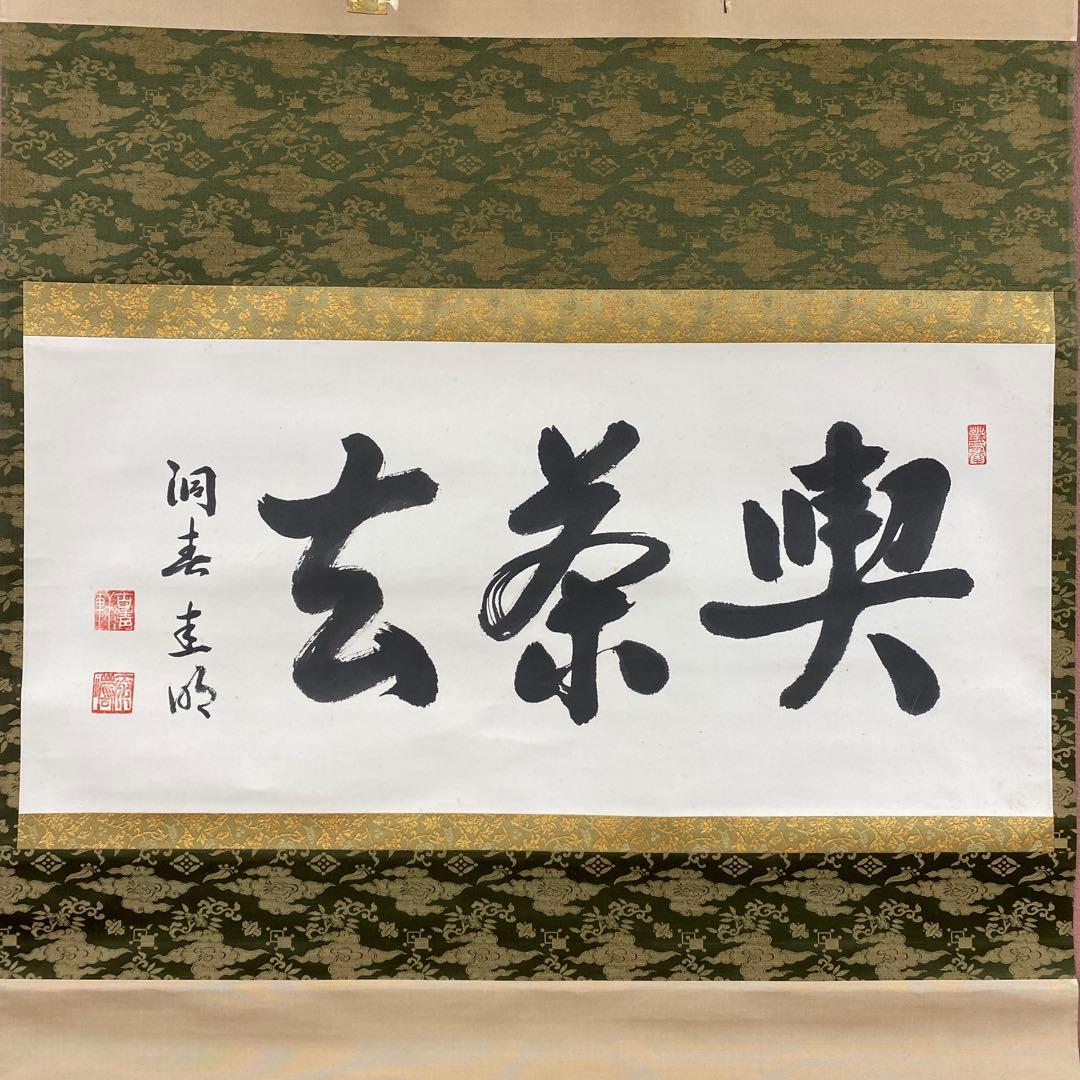 喫茶去
洞春圭明